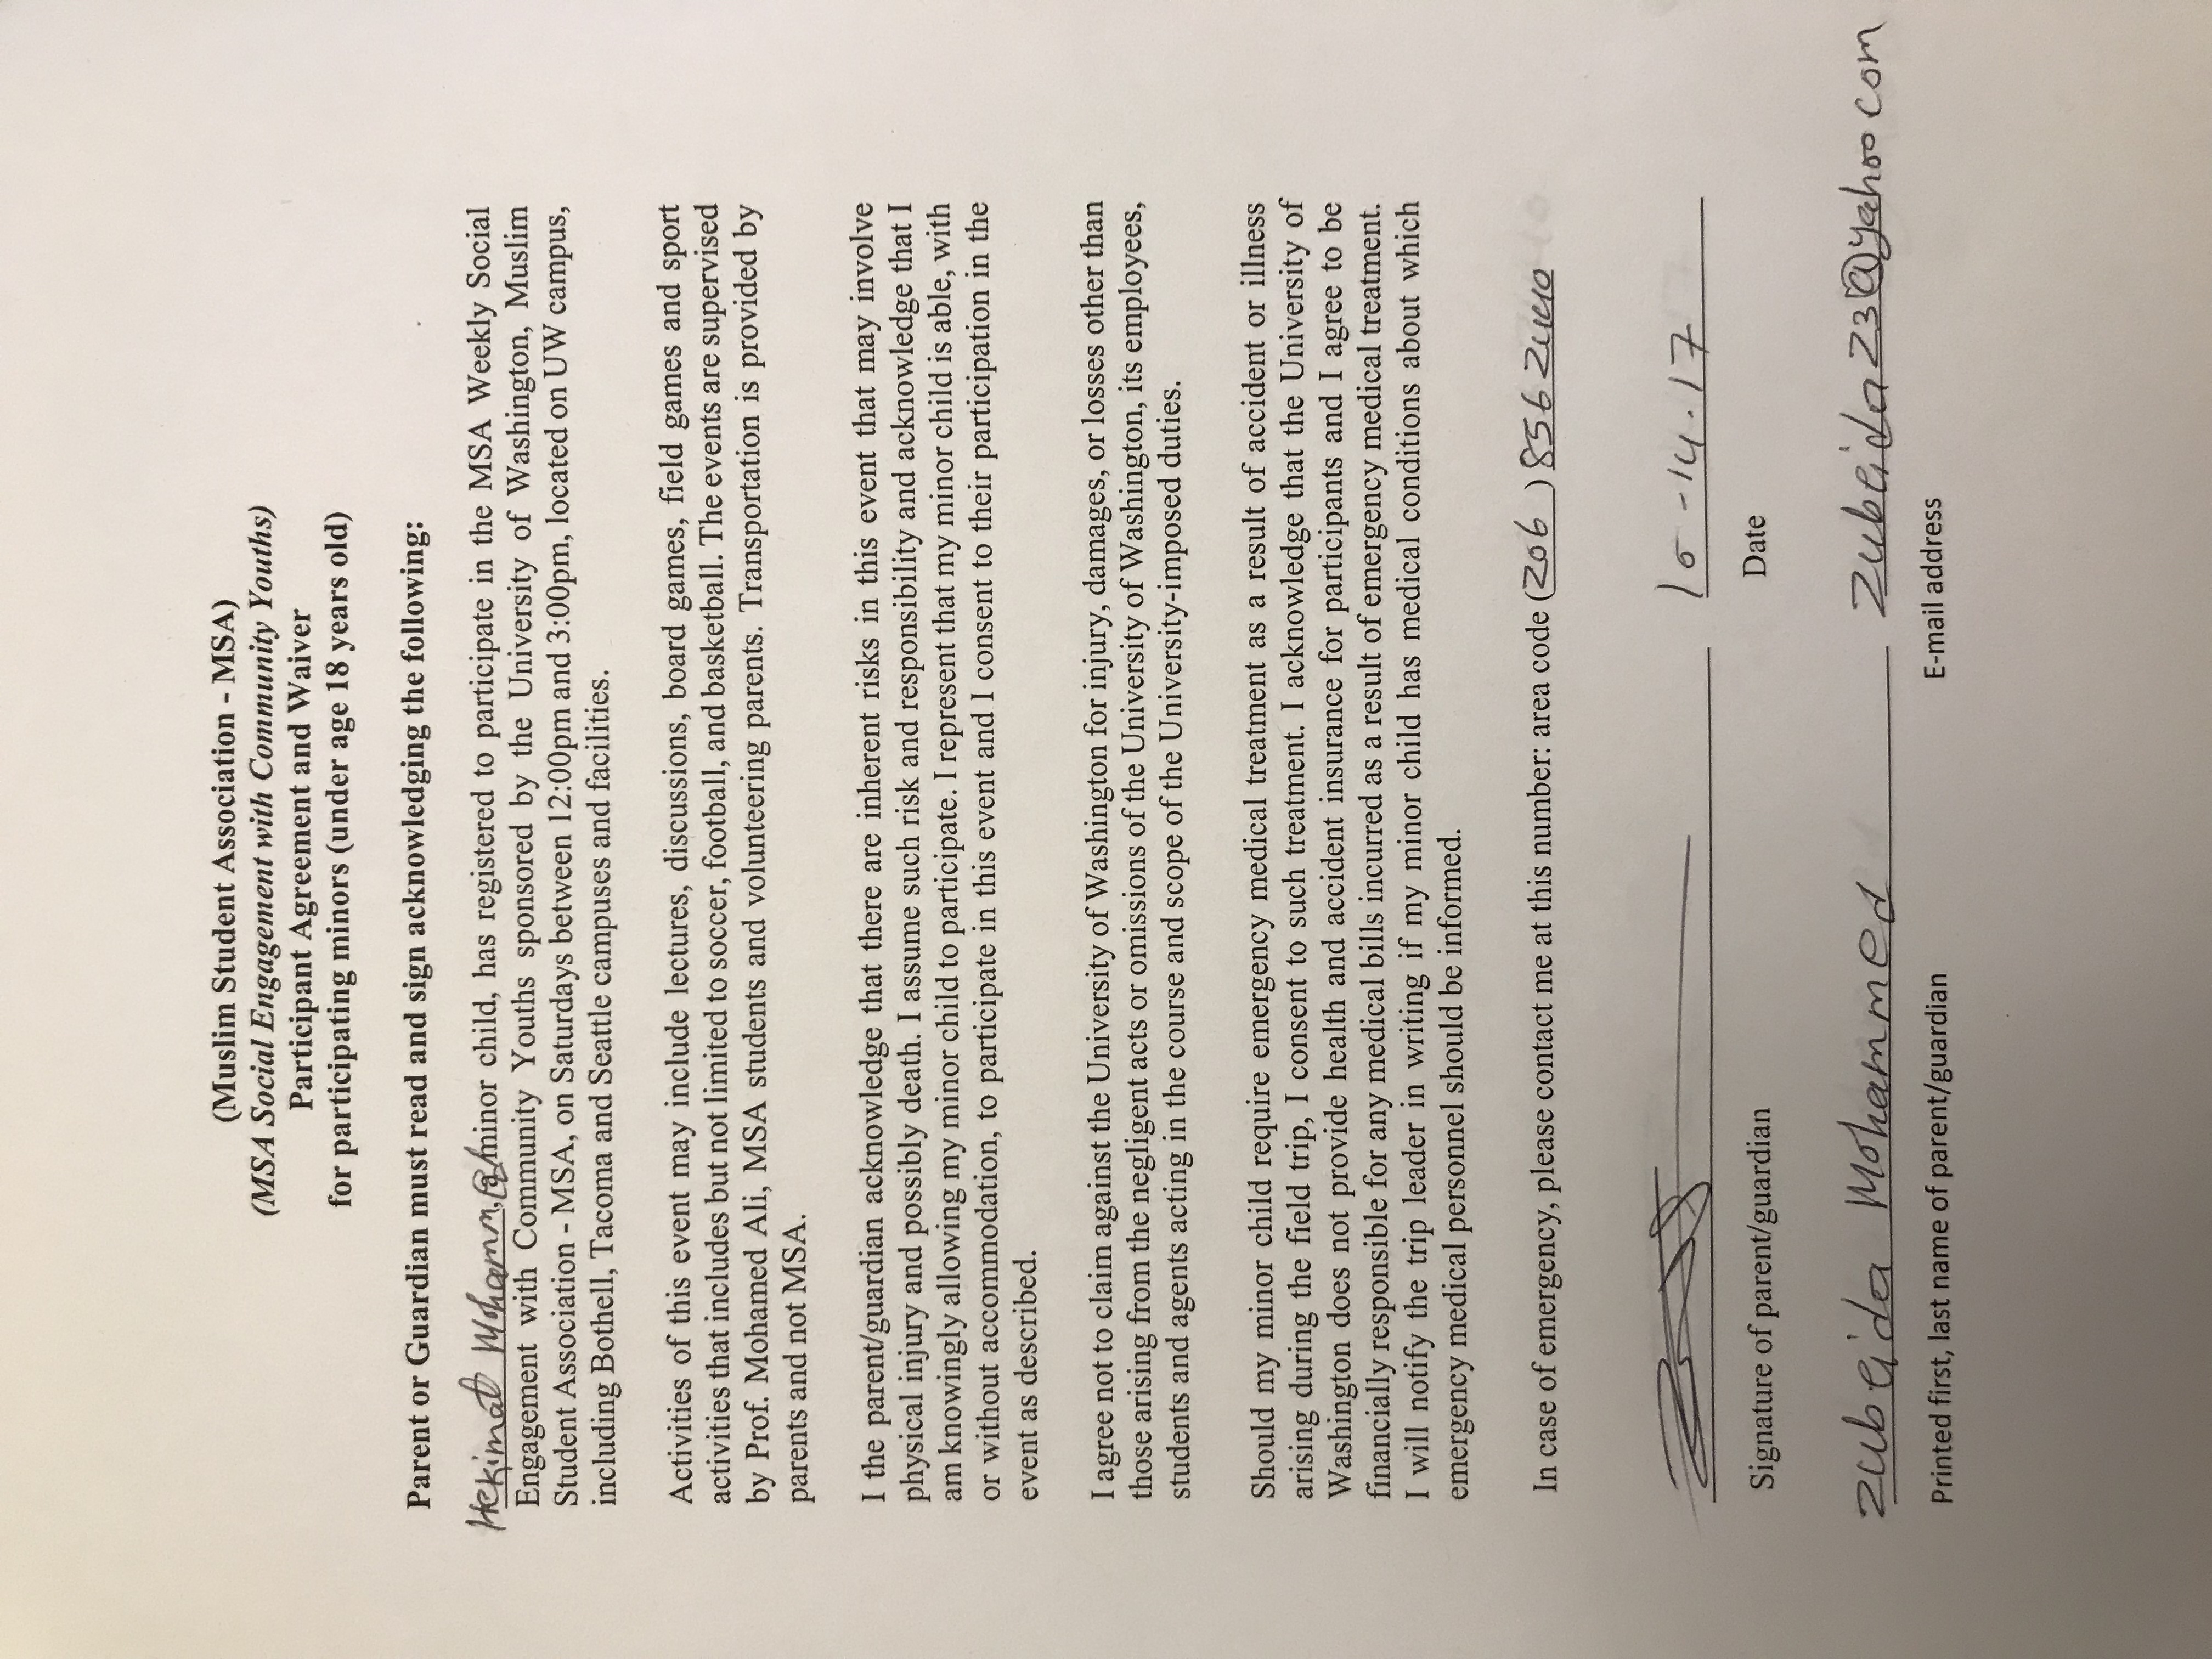 (Muslim Student Association - MSA)
(MSA Social Engagement with Community Youths)
Participant Agreement and Waiver
for participating minors (under age 18 years old)
Parent or Guardian must read and sign acknowledging the following:
Hekimat minor child, has registered to participate in the MSA Weekly Social
Engagement with Community Youths sponsored by the University of Washington, Muslim
Student Association - MSA, on Saturdays between 12:00pm and 3:00pm, located on UW campus,
including Bothell, Tacoma and Seattle campuses and facilities.
Activities of this event may include lectures, discussions, board games, field games and sport
activities that includes but not limited to soccer, football, and basketball. The events are supervised
by Prof. Mohamed Ali, MSA students and volunteering parents. Transportation is provided by
parents and not MSA.
I the parent/guardian acknowledge that there are inherent risks in this event that may involve
physical injury and possibly death. I assume such risk and responsibility and acknowledge that I
am knowingly allowing my minor child to participate. I represent that my minor child is able, with
or without accommodation, to participate in this event and I consent to their participation in the
event as described.
I agree not to claim against the University of Washington for injury, damages, or losses other than
those arising from the negligent acts or omissions of the University of Washington, its employees,
students and agents acting in the course and scope of the University-imposed duties.
Should my minor child require emergency medical treatment as a result of accident or illness
arising during the field trip, I consent to such treatment. I acknowledge that the University of
Washington does not provide health and accident insurance for participants and I agree to be
financially responsible for any medical bills incurred as a result of emergency medical treatment.
I will notify the trip leader in writing if my minor child has medical conditions about which
emergency medical personnel should be informed.
In case of emergency, please contact me at this number: area code (206 ) 856 2440
10-14.17
Signature of parent/guardian Date
zubeida Mohammed zubeida23@yahoo com
Printed first, last name of parent/guardian E-mail address